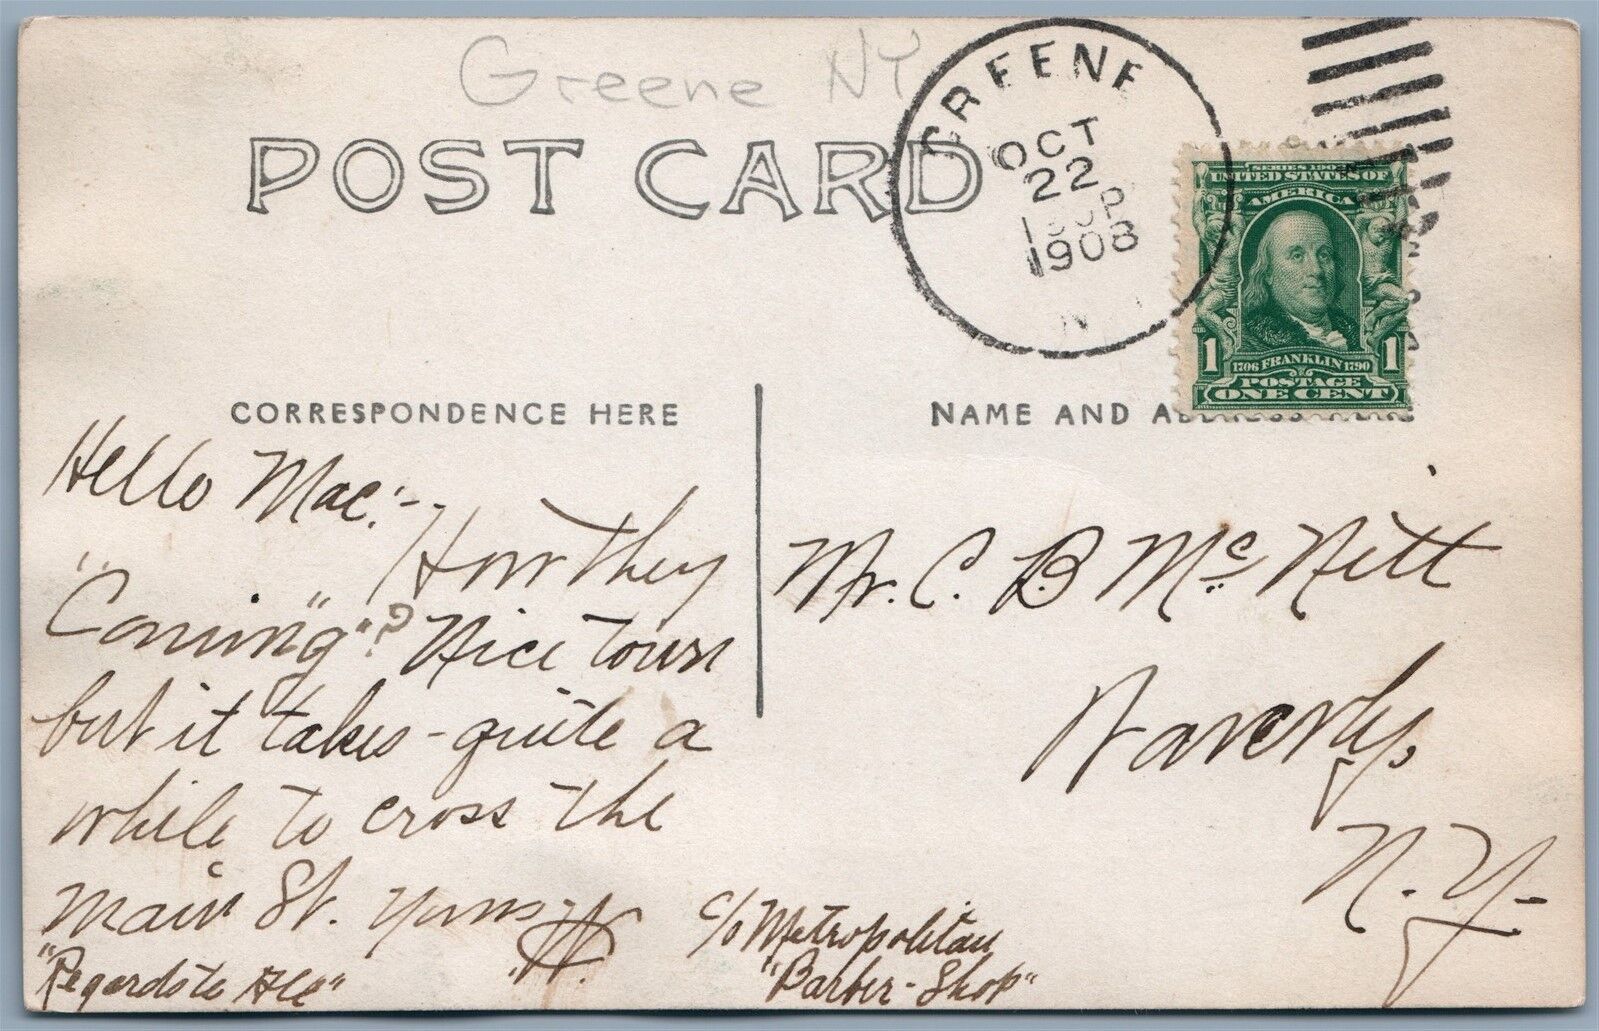 Greene NY
POST CARD
GREENE
OCT
22
1908
N
UNITED STATES OF
AMERICA
1 1706 FRANKLIN 1790 1
POSTAGE
ONE CENT
CORRESPONDENCE HERE
NAME AND ADDRESS HERE
Hello Mac:-
How They
"Coming"? Nice town
but it takes - quite a
while to cross the
main St. Yours
W.
"Regards to All"
Mr. C. B. McNitt
Waverly,
N.Y.
c/o Metropolitan
"Barber-Shop"